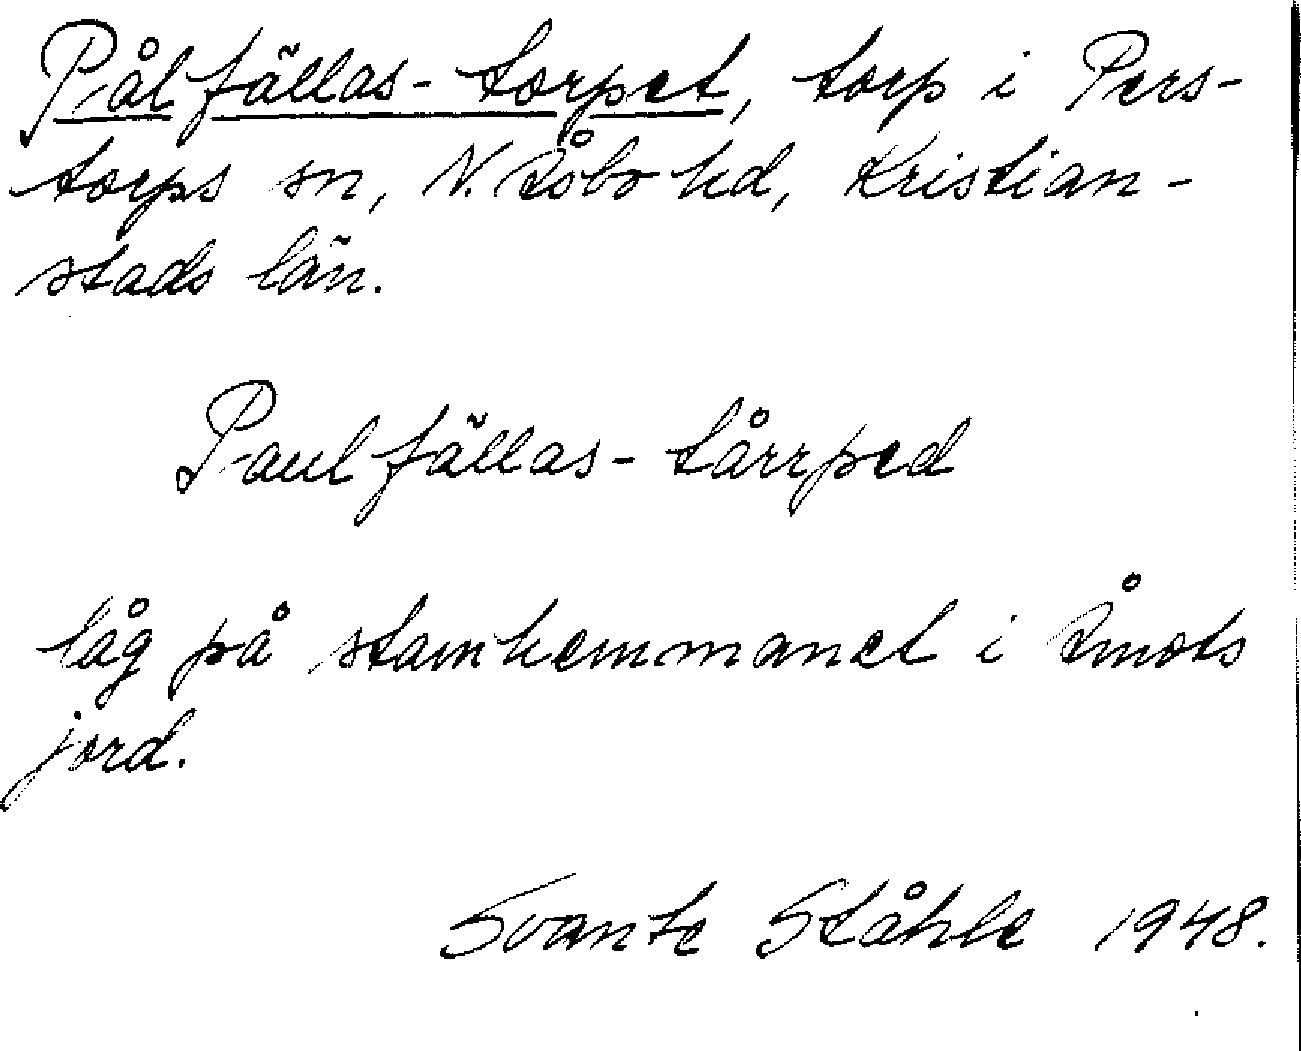 Pålfällas-torpet, torp i Pers-
torps sn, N. Åsbo hd, Kristian-
stads län.
Paulfällas-tårrped
låg på stamhemmanet i Åmots
jord.
Svante Ståhle 1948.